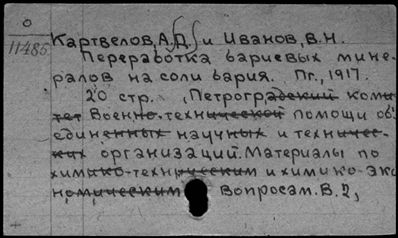 О
11485
Картвелов, А.Д. и Иванов, В.Н.
Переработка бариевых мине-
ралов на соли бария. Пг., 1917.
20 стр. (Петроградский коми-
тет Военно-технической помощи об'
единенных научных и техничес-
ких организаций. Материалы по
химико-техническим и химико-эко
номическим вопросам. В. 2,